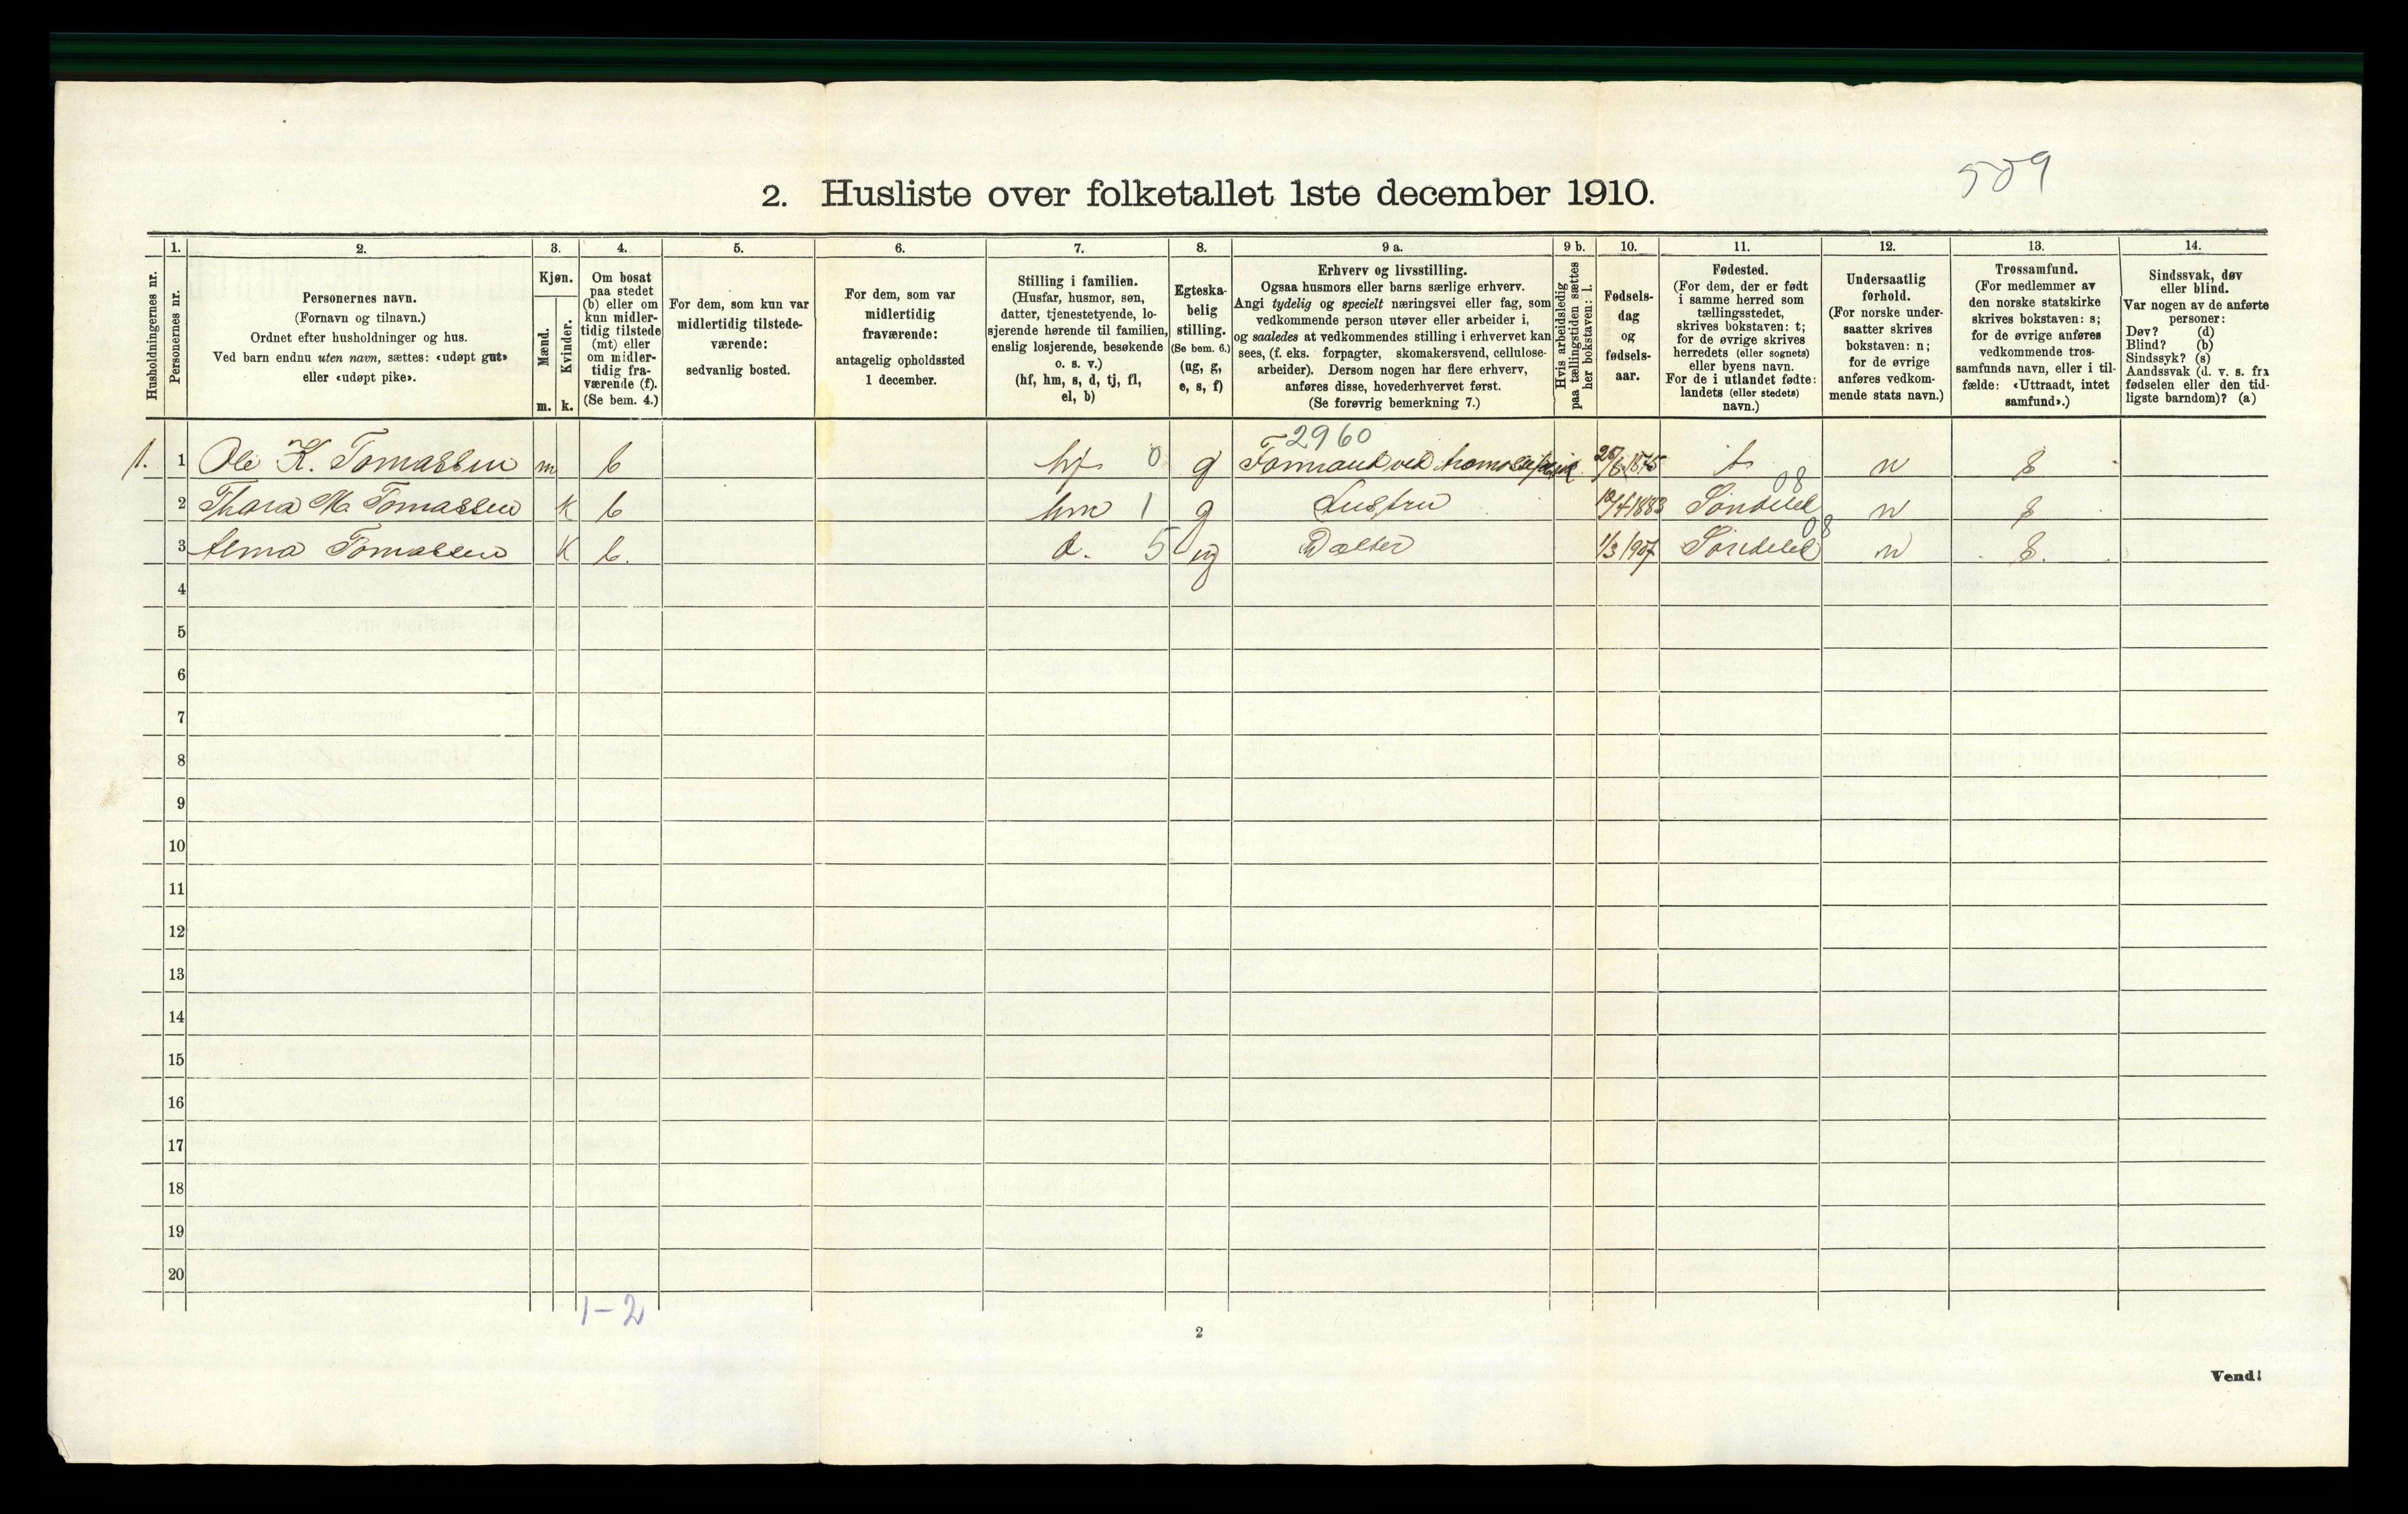 509
2. Husliste over folketallet 1ste december 1910.
Husholdningernes nr.
1.
Personernes nr.
2.
Personernes navn.
(Fornavn og tilnavn.)
Ordnet efter husholdninger og hus.
Ved barn endnu uten navn, sættes: «udøpt gut»
eller «udøpt pike».
3.
Kjøn.
Mænd.
Kvinder.
m. k.
4.
Om bosat
paa stedet
(b) eller om
kun midler-
tidig tilstede
(mt) eller
om midler-
tidig fra-
værende (f).
(Se bem. 4.)
5.
For dem, som kun var
midlertidig tilstede-
værende:
sedvanlig bosted.
6.
For dem, som var
midlertidig
fraværende:
antagelig opholdssted
1 december.
7.
Stilling i familien.
(Husfar, husmor, søn,
datter, tjenestetyende, lo-
sjerende hørende til familien,
enslig losjerende, besøkende
o. s. v.)
(hf, hm, s, d, tj, fl,
el, b)
8.
Egteska-
belig
stilling.
(Se bem. 6.)
(ug, g,
e, s, f)
9 a.
Erhverv og livsstilling.
Ogsaa husmors eller barns særlige erhverv.
Angi tydelig og specielt næringsvei eller fag, som
vedkommende person utøver eller arbeider i,
og saaledes at vedkommendes stilling i erhvervet kan
sees, (f. eks. forpagter, skomakersvend, cellulose-
arbeider). Dersom nogen har flere erhverv,
anføres disse, hovederhvervet først.
(Se forøvrig bemerkning 7.)
9 b.
Hvis arbeidsledig
paa tællingstiden sættes
her bokstaven: l.
10.
Fødsels-
dag
og
fødsels-
aar.
11.
Fødested.
(For dem, der er født
i samme herred som
tællingsstedet,
skrives bokstaven: t;
for de øvrige skrives
herredets (eller sognets)
eller byens navn.
For de i utlandet fødte:
landets (eller stedets)
navn.)
12.
Undersaatlig
forhold.
(For norske under-
saatter skrives
bokstaven: n;
for de øvrige
anføres vedkom-
mende stats navn.)
13.
Trossamfund.
(For medlemmer av
den norske statskirke
skrives bokstaven: s;
for de øvrige anføres
vedkommende tros-
samfunds navn, eller i til-
fælde: «Uttraadt, intet
samfund».)
14.
Sindssvak, døv
eller blind.
Var nogen av de anførte
personer:
Døv? (d)
Blind? (b)
Sindssyk? (s)
Aandssvak (d. v. s. fra
fødselen eller den tid-
ligste barndom)? (a)
2960
1. 1 Ole K. Tomassen m b hf 0 g Formand ved t n s
08
2 Thora M. Tomassen k b hm 1 g Hustru 1883 Søndeled n s
08
3 Alma Tomassen k b. d. 5 ug Datter 1/3 1907 Søndeled n s.
4
5
6
7
8
9
10
11
12
13
14
15
16
17
18
19
20
1-2
2
Vend!